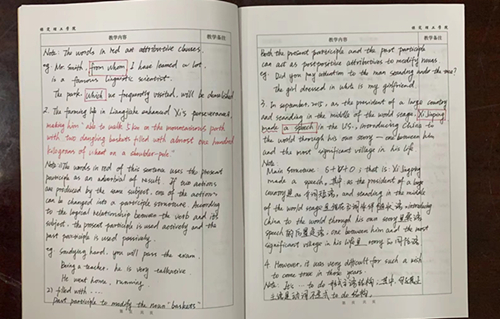 教学内容
教学备注
Note: The words in red are attributive clauses.
eg. Mr. Smith, from whom I have learned a lot,
is a famous linguistic scientist.
The park, which we frequently visited, will be demolished
2. The farming life in Liangjiahe enhanced Xi's perseverance,
making him able to walk 5 km on the mountainous path
with two dangling baskets filled with almost one hundred
kilograms of wheat on a shoulder-pole.
Note: The words in red of this sentence uses the present
participle as an adverbial of result. If two actions
are produced by the same subject, one of the actions
can be changed into a participle structure. According
to the logical relationship between the verb and its
subject, the present participle is used actively and the
past participle is used passively.
eg. Studying hard, you will pass the exam.
Being a teacher, he is very talkative
He went home, running.
2) filled with ...
Past participle to modify the noun "baskets"
教学内容
教学备注
Both the present participle and the past participle
can act as postpositive attributives to modify nouns
eg. Did you pay attention to the man standing under the tree?
The girl dressed in white is my girlfriend.
3. In september, 2015, as the president of a large country
and standing in the middle of the world stage, Xi Jinping
made a speech in the U.S., introducing China to
the world through his own story — one between him
and the most significant village in his life
Note
Main structure S+V+O, that is: Xi Jinping
made a speech, 其中, as the president of a large
country and standing in the middle
of the world stage introducing
China to the world through his own story
speech one between him and the most
significant village in his life story
4. However, it was very difficult for such a wish
to come true in those years.
Note: to do
to do